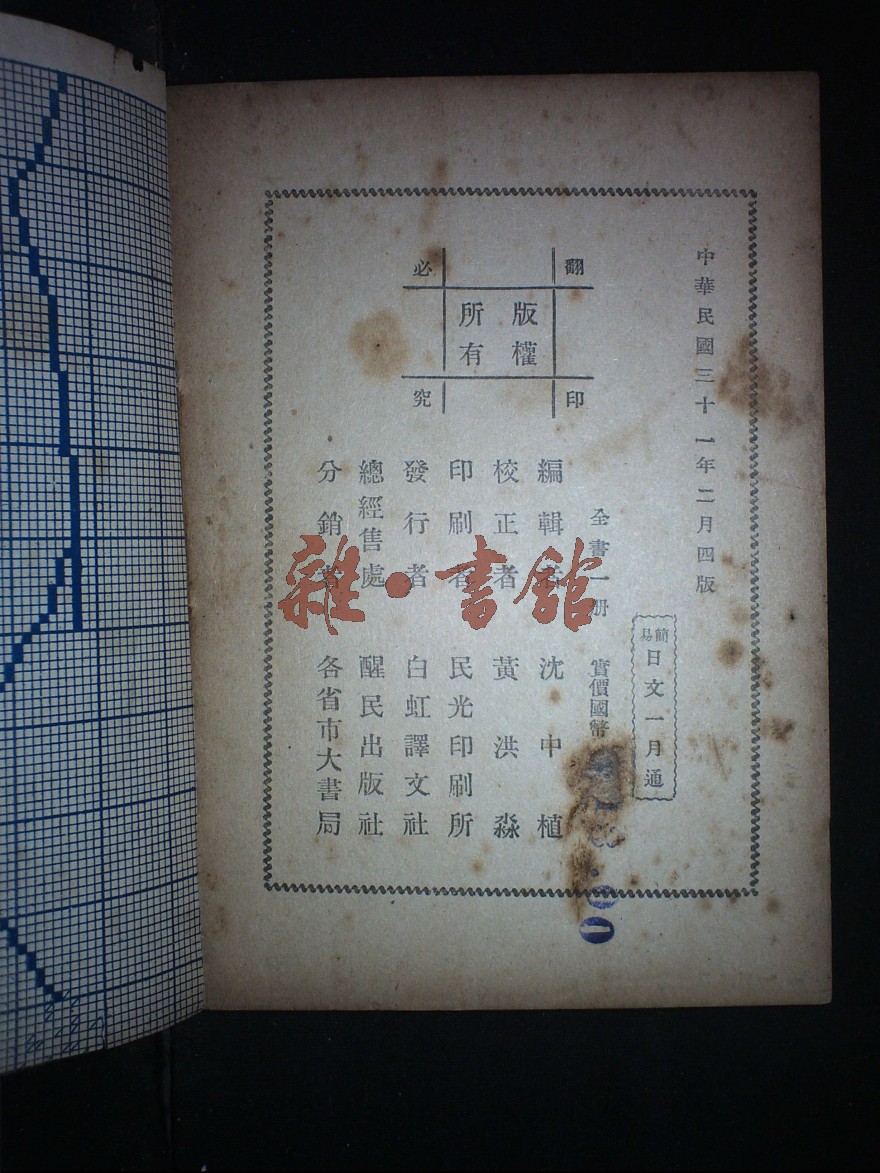 中華民國三十一年二月四版
簡易日文一月通
全書一册 實價國幣
翻印必究
版權所有
編輯者 沈中植
校正者 黃洪淼
印刷者 民光印刷所
發行者 白虹譯文社
總經售處 醒民出版社
分銷者 各省市大書局
雜·書館